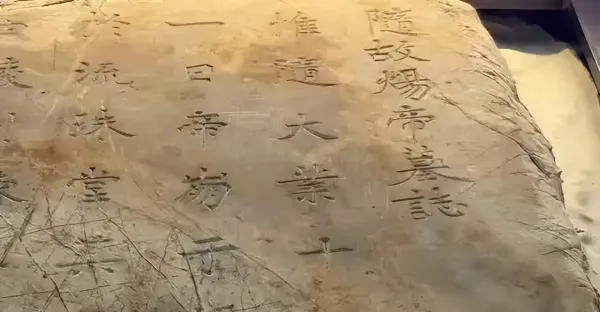 隨故煬帝墓誌
惟隨大業十
一日帝崩于
於流珠堂